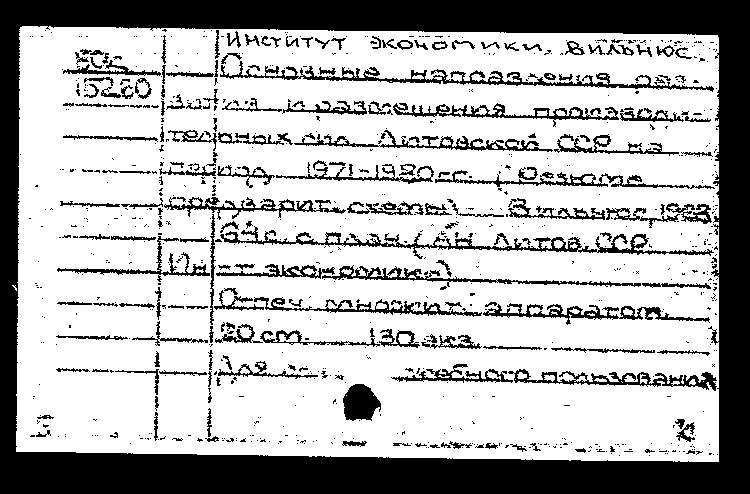 Институт экономики, Вильнюс.
Основные направления раз-
15220
вития и размещения производи-
тельных сил Литовской ССР на
период 1971-1980 гг. (Резюме
предварит. схемы). Вильнюс, 1968.
64 с. с план. (АН Литов. ССР.
Ин-т экономики)
Отпеч. множит. аппаратом.
20 cm. 130 экз.
Для служебного пользования